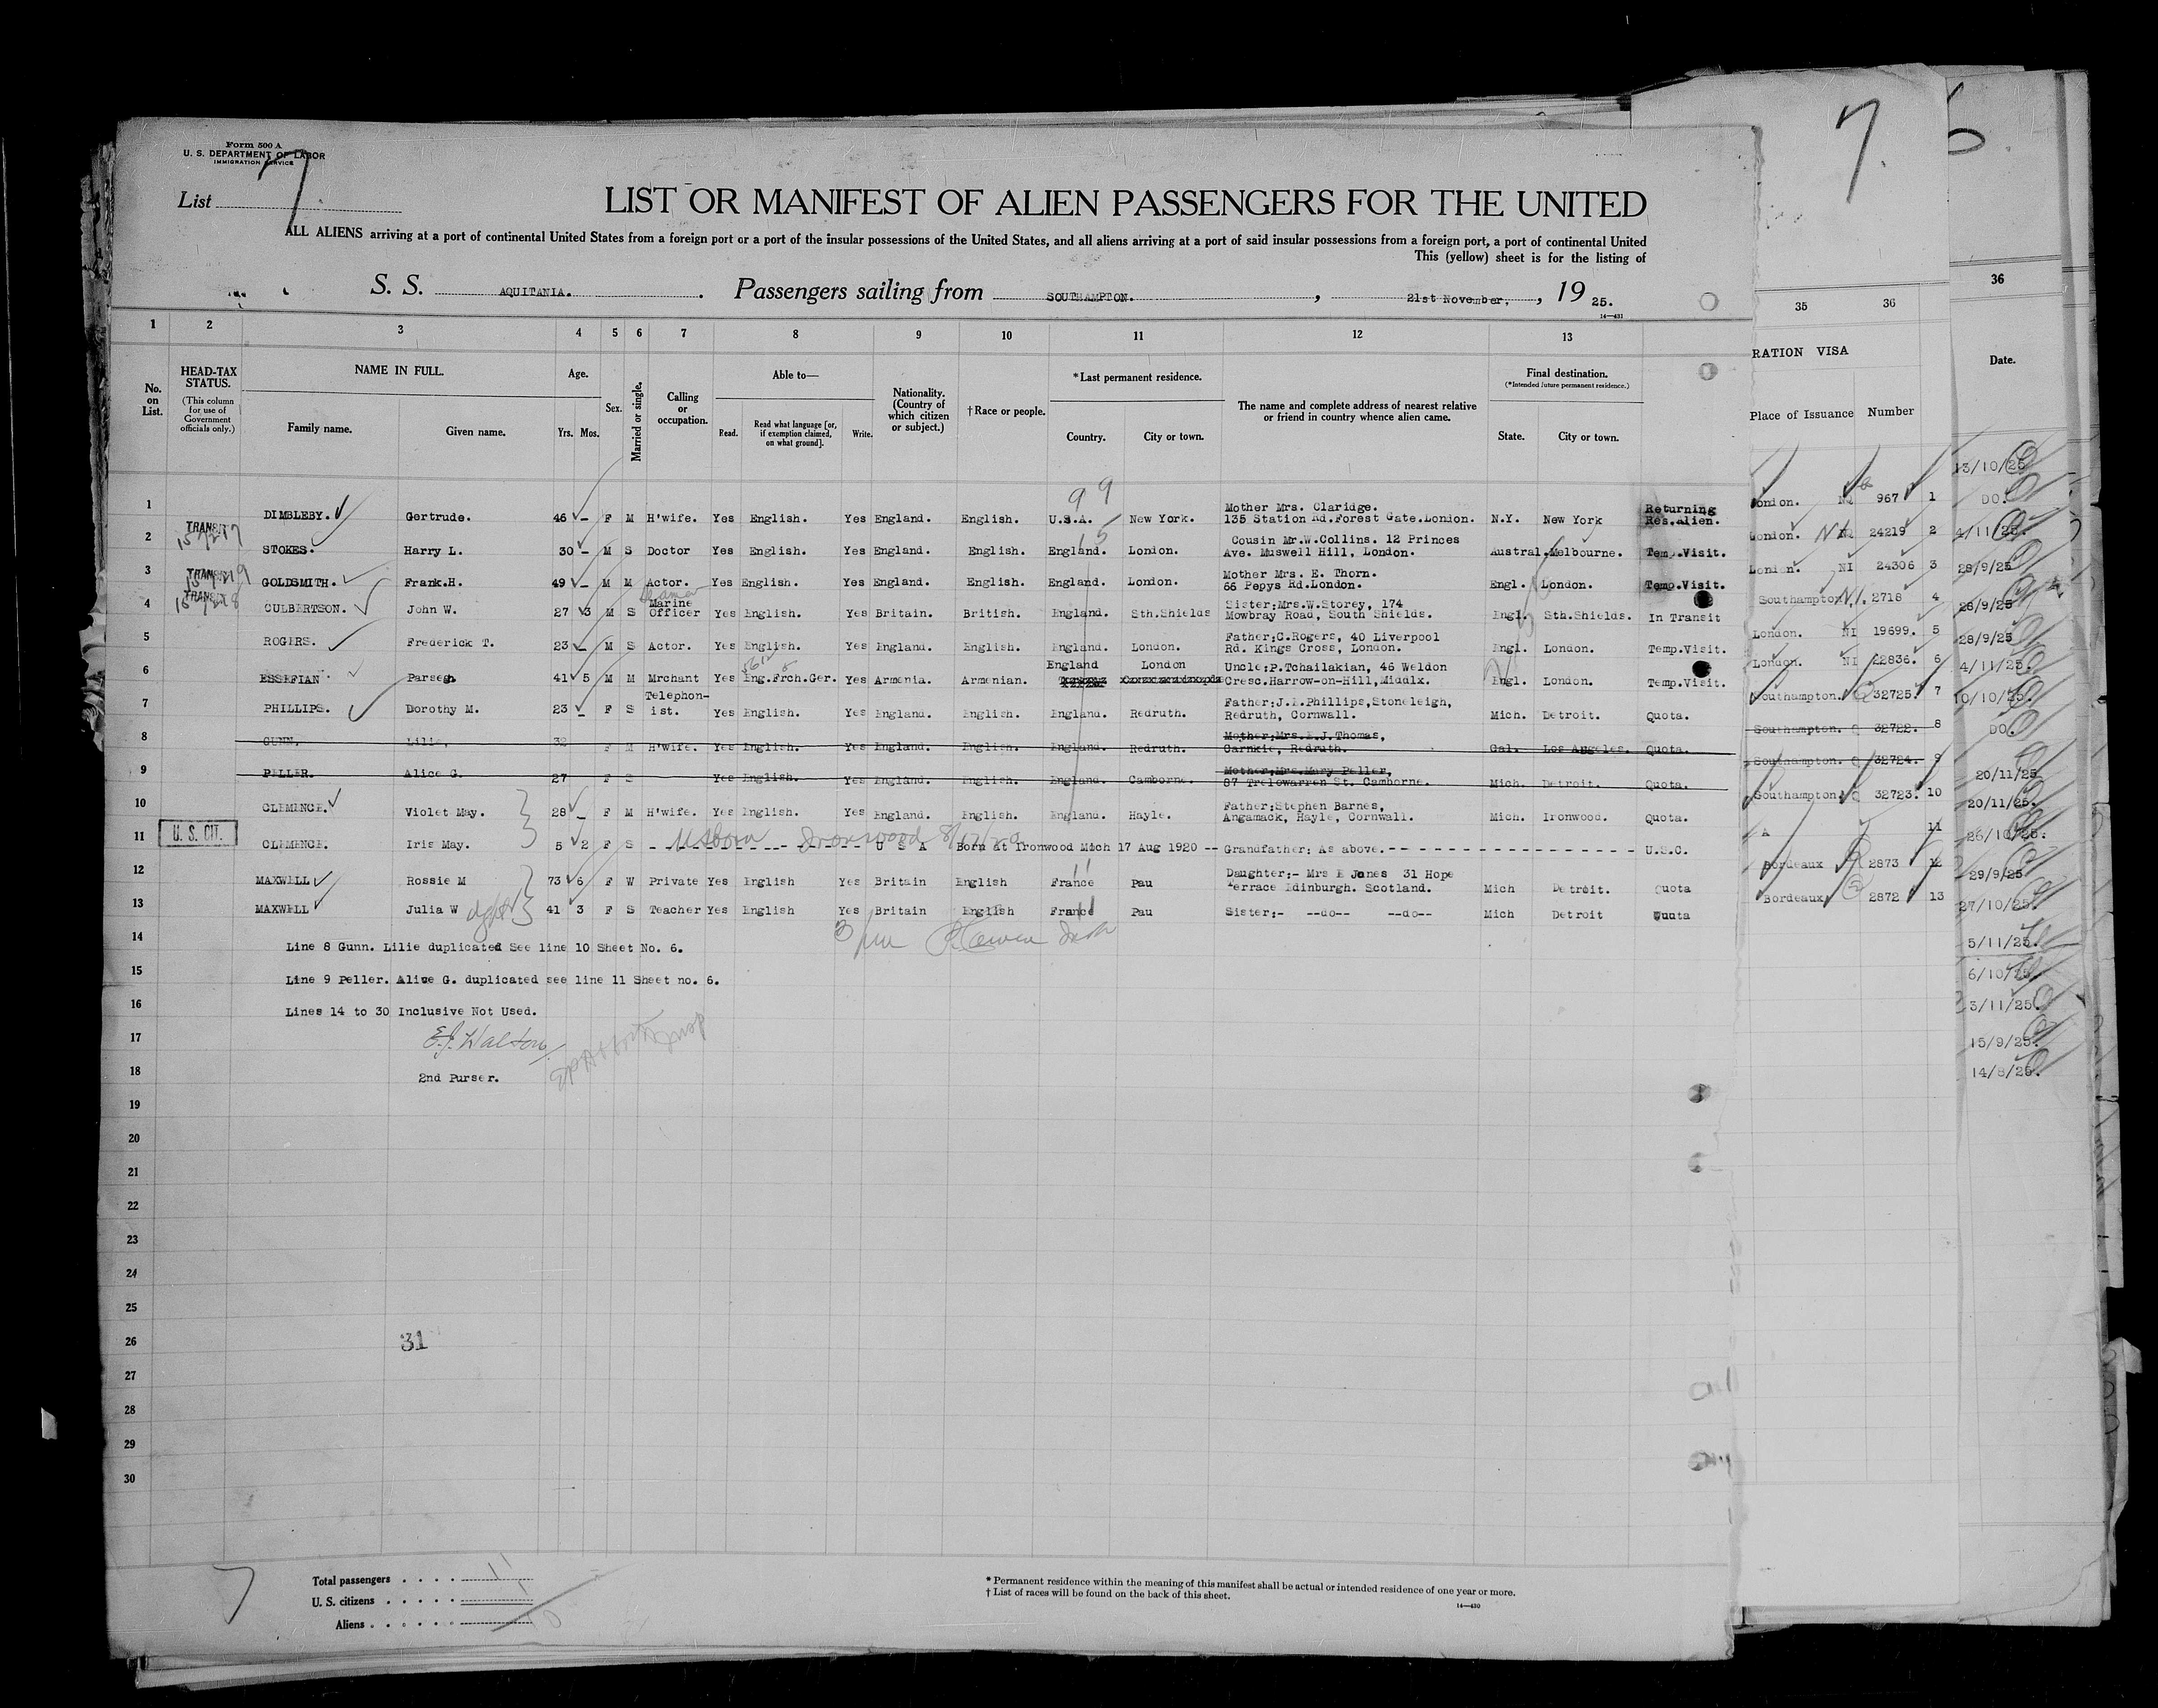 Form 500 A
U. S. DEPARTMENT OF LABOR
IMMIGRATION SERVICE
List 7
LIST OR MANIFEST OF ALIEN PASSENGERS FOR THE UNITED
ALL ALIENS arriving at a port of continental United States from a foreign port or a port of the insular possessions of the United States, and all aliens arriving at a port of said insular possessions from a foreign port, a port of continental United
This (yellow) sheet is for the listing of
S. S. AQUITANIA. Passengers sailing from SOUTHAMPTON. , 21st November, , 19 25.
14—431
1 2 3 4 5 6 7 8 9 10 11 12 13
No. on List.
HEAD-TAX STATUS.
(This column for use of Government officials only.)
NAME IN FULL.
Family name. Given name.
Age.
Yrs. Mos.
Sex.
Married or single.
Calling or occupation.
Able to—
Read. Read what language [or, if exemption claimed, on what ground]. Write.
Nationality. (Country of which citizen or subject.)
†Race or people.
*Last permanent residence.
Country. City or town.
The name and complete address of nearest relative or friend in country whence alien came.
Final destination.
(*Intended future permanent residence.)
State. City or town.
99
1 DIMBLEBY. Gertrude. 46 - F M H'wife. Yes English. Yes England. English. U.S.A. New York. Mother Mrs. Claridge. 135 Station Rd.Forest Gate.London. N.Y. New York Returning Res.alien.
15
2 TRANSIT STOKES. Harry L. 30 - M S Doctor Yes English. Yes England. English. England. London. Cousin Mr.W.Collins. 12 Princes Ave. Muswell Hill, London. Austral. Melbourne. Temp.Visit.
3 TRANSIT GOLDSMITH. Frank.H. 49 - M M Actor. Yes English. Yes England. English. England. London. Mother Mrs. E. Thorn. 66 Pepys Rd.London. Engl. London. Temp.Visit.
4 TRANSIT CULBERTSON. John W. 27 3 M S Seaman Marine Officer Yes English. Yes Britain. British. England. Sth.Shields Sister;Mrs.W.Storey, 174 Mowbray Road, South Shields. Engl. Sth.Shields. In Transit
5 ROGERS. Frederick T. 23 - M S Actor. Yes English. Yes England. English. England. London. Father;C.Rogers, 40 Liverpool Rd. Kings Cross, London. Engl. London. Temp.Visit.
6 ESSEFIAN. Parsegh 41 5 M M Mrchant Yes Eng.Frch.Ger. Yes Armenia. Armenian. England London Uncle;P.Tchailakian, 46 Weldon Cresc.Harrow-on-Hill,Middlx. Engl. London. Temp.Visit.
7 PHILLIPS. Dorothy M. 23 - F S Telephon-ist. Yes English. Yes England. English. England. Redruth. Father;J.E.Phillips,Stoneleigh, Redruth, Cornwall. Mich. Detroit. Quota.
8 GUNN, Lilie, 32 F M H'wife. Yes English. Yes England. English. England. Redruth. Mother;Mrs.E.J.Thomas, Carnkie, Redruth. Cal. Los Angeles. Quota.
9 PELLER. Alice G. 27 F S Yes English. Yes England. English. England. Camborne. Mother;Mrs.Mary Peller, 87 Trelowarren St. Camborne. Mich. Detroit. Quota.
10 CLEMENCE. Violet May. 28 - F M H'wife. Yes English. Yes England. English. England. Hayle. Father;Stephen Barnes, Angamack, Hayle, Cornwall. Mich. Ironwood. Quota.
US born Ironwood 8/17/20
11 U. S. CIT. CLEMENCE. Iris May. 5 2 F S U S A Born at Ironwood Mich 17 Aug 1920 -- Grandfather; As above. U.S.C.
12 MAXWELL Rossie M 73 6 F W Private Yes English Yes Britain English France Pau Daughter;- Mrs E Jones 31 Hope Terrace Edinburgh. Scotland. Mich Detroit. Quota
13 MAXWELL Julia W 41 3 F S Teacher Yes English Yes Britain English France Pau Sister;- --do-- --do-- Mich Detroit Quota
14 Line 8 Gunn. Lilie duplicated See line 10 Sheet No. 6.
15 Line 9 Peller. Alice G. duplicated see line 11 Sheet no. 6.
16 Lines 14 to 30 Inclusive Not Used.
17 E.J. Walton
18 2nd Purser.
19
20
21
22
23
24
25
26 31
27
28
29
30
7
Total passengers 11
U. S. citizens 1
Aliens 10
* Permanent residence within the meaning of this manifest shall be actual or intended residence of one year or more.
† List of races will be found on the back of this sheet.
14—430
7.
35 36
RATION VISA
Place of Issuance Number
London. 967 1
London. NI 24219 2
London. NI 24306 3
Southampton NI 2718 4
London. NI 19699. 5
London. NI 22836. 6
Southampton. Q 32725. 7
Southampton. Q 32722. 8
Southampton. Q 32724. 9
Southampton. Q 32723. 10
11
Bordeaux 2873 12
Bordeaux 2872 13
6.
36
Date.
13/10/25
DO.
4/11/25.
28/9/25
28/9/25
28/9/25
4/11/25.
10/10/25.
DO.
20/11/25.
20/11/25.
26/10/25.
29/9/25
27/10/25.
5/11/25.
6/10/25.
3/11/25.
15/9/25.
14/8/25.